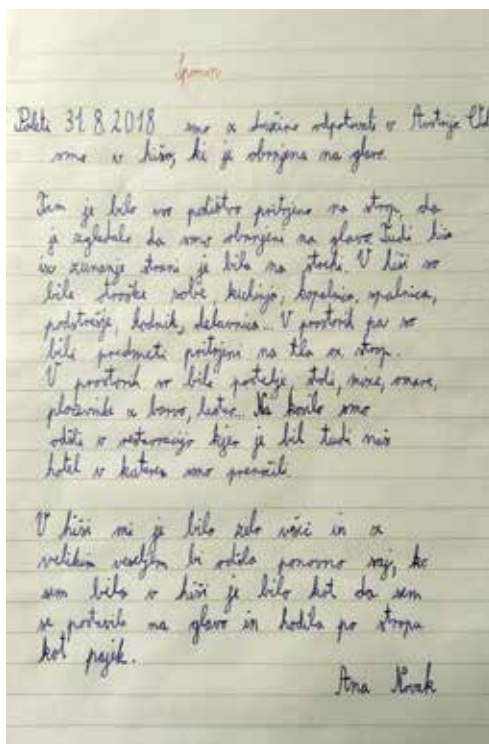 Spomin
Poleti 31.8.2018 smo z družino odpotovali v Avstrijo
smo v hišo, ki je obrnjena na glavo.
Tam je bilo vso pohištvo pritrjeno na strop, da
je zgledalo da smo obrnjeni na glavo. Tudi
zunanje strani je bila na strehi. V hiši so
bile otroške sobe, kuhinja, kopalnica, spalnica,
podstrešje, hodnik, delavnica... V prostorih pa so
bili predmeti pritrjeni na tla oz. strop.
V prostorih so bile postelje, stoli, mize, omare,
pločevinke z barvo, lestev... Na kosilo smo
odšli v restavracijo kjer je bil tudi naš
hotel v katerem smo prenočili.
V hiši mi je bilo zelo všeč in z
velikim veseljem bi odšla ponovno saj, ko
sem bila v hiši je bilo kot da sem
se postavila na glavo in hodila po stropu
kot pajek.
Ana Novak